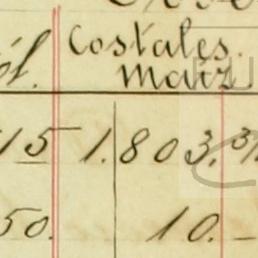 Costales.
maiz
15 1.803.3/
50. 10.-